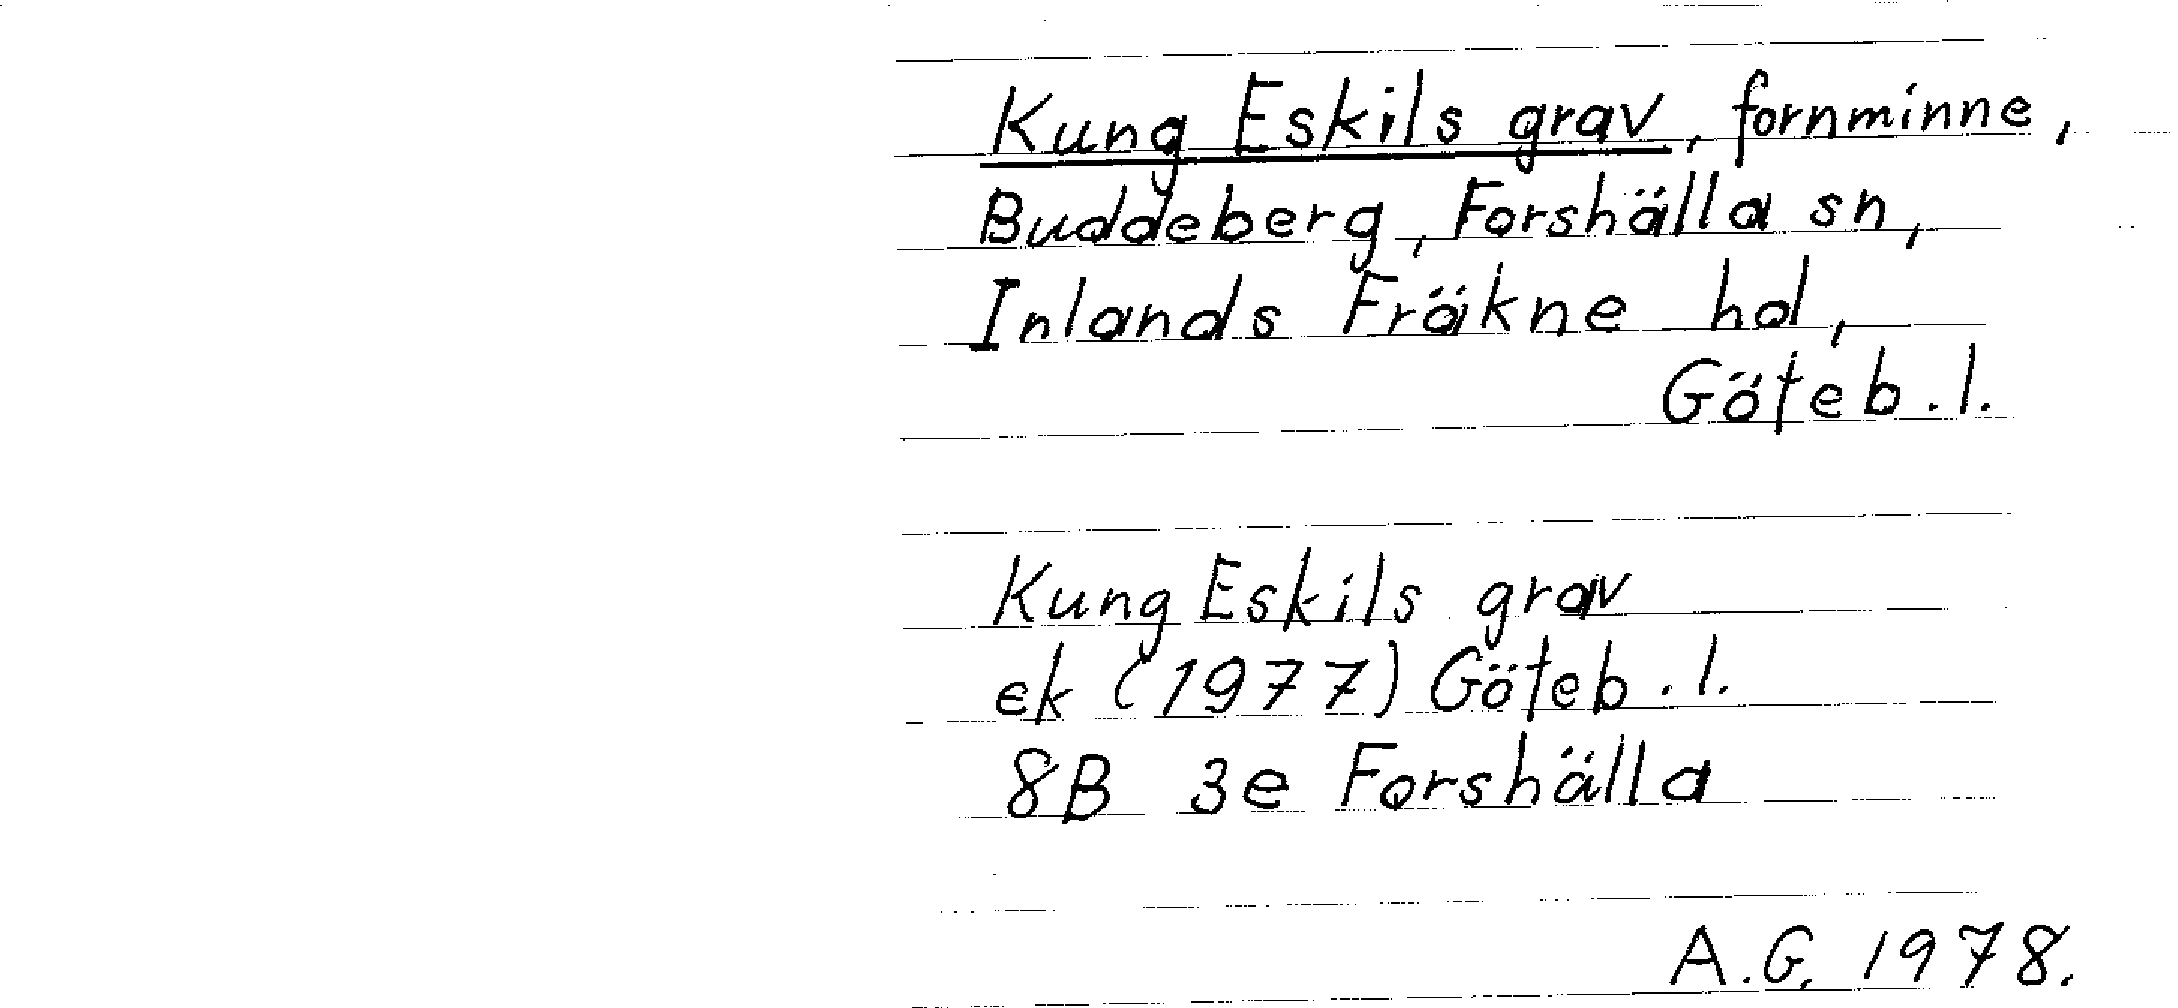 Kung Eskils grav, fornminne,
Buddeberg, Forshälla sn,
Inlands Fräkne hd,
Göteb. l.
Kung Eskils grav
ek (1977) Göteb. l.
8B 3e Forshälla
A.G. 1978.